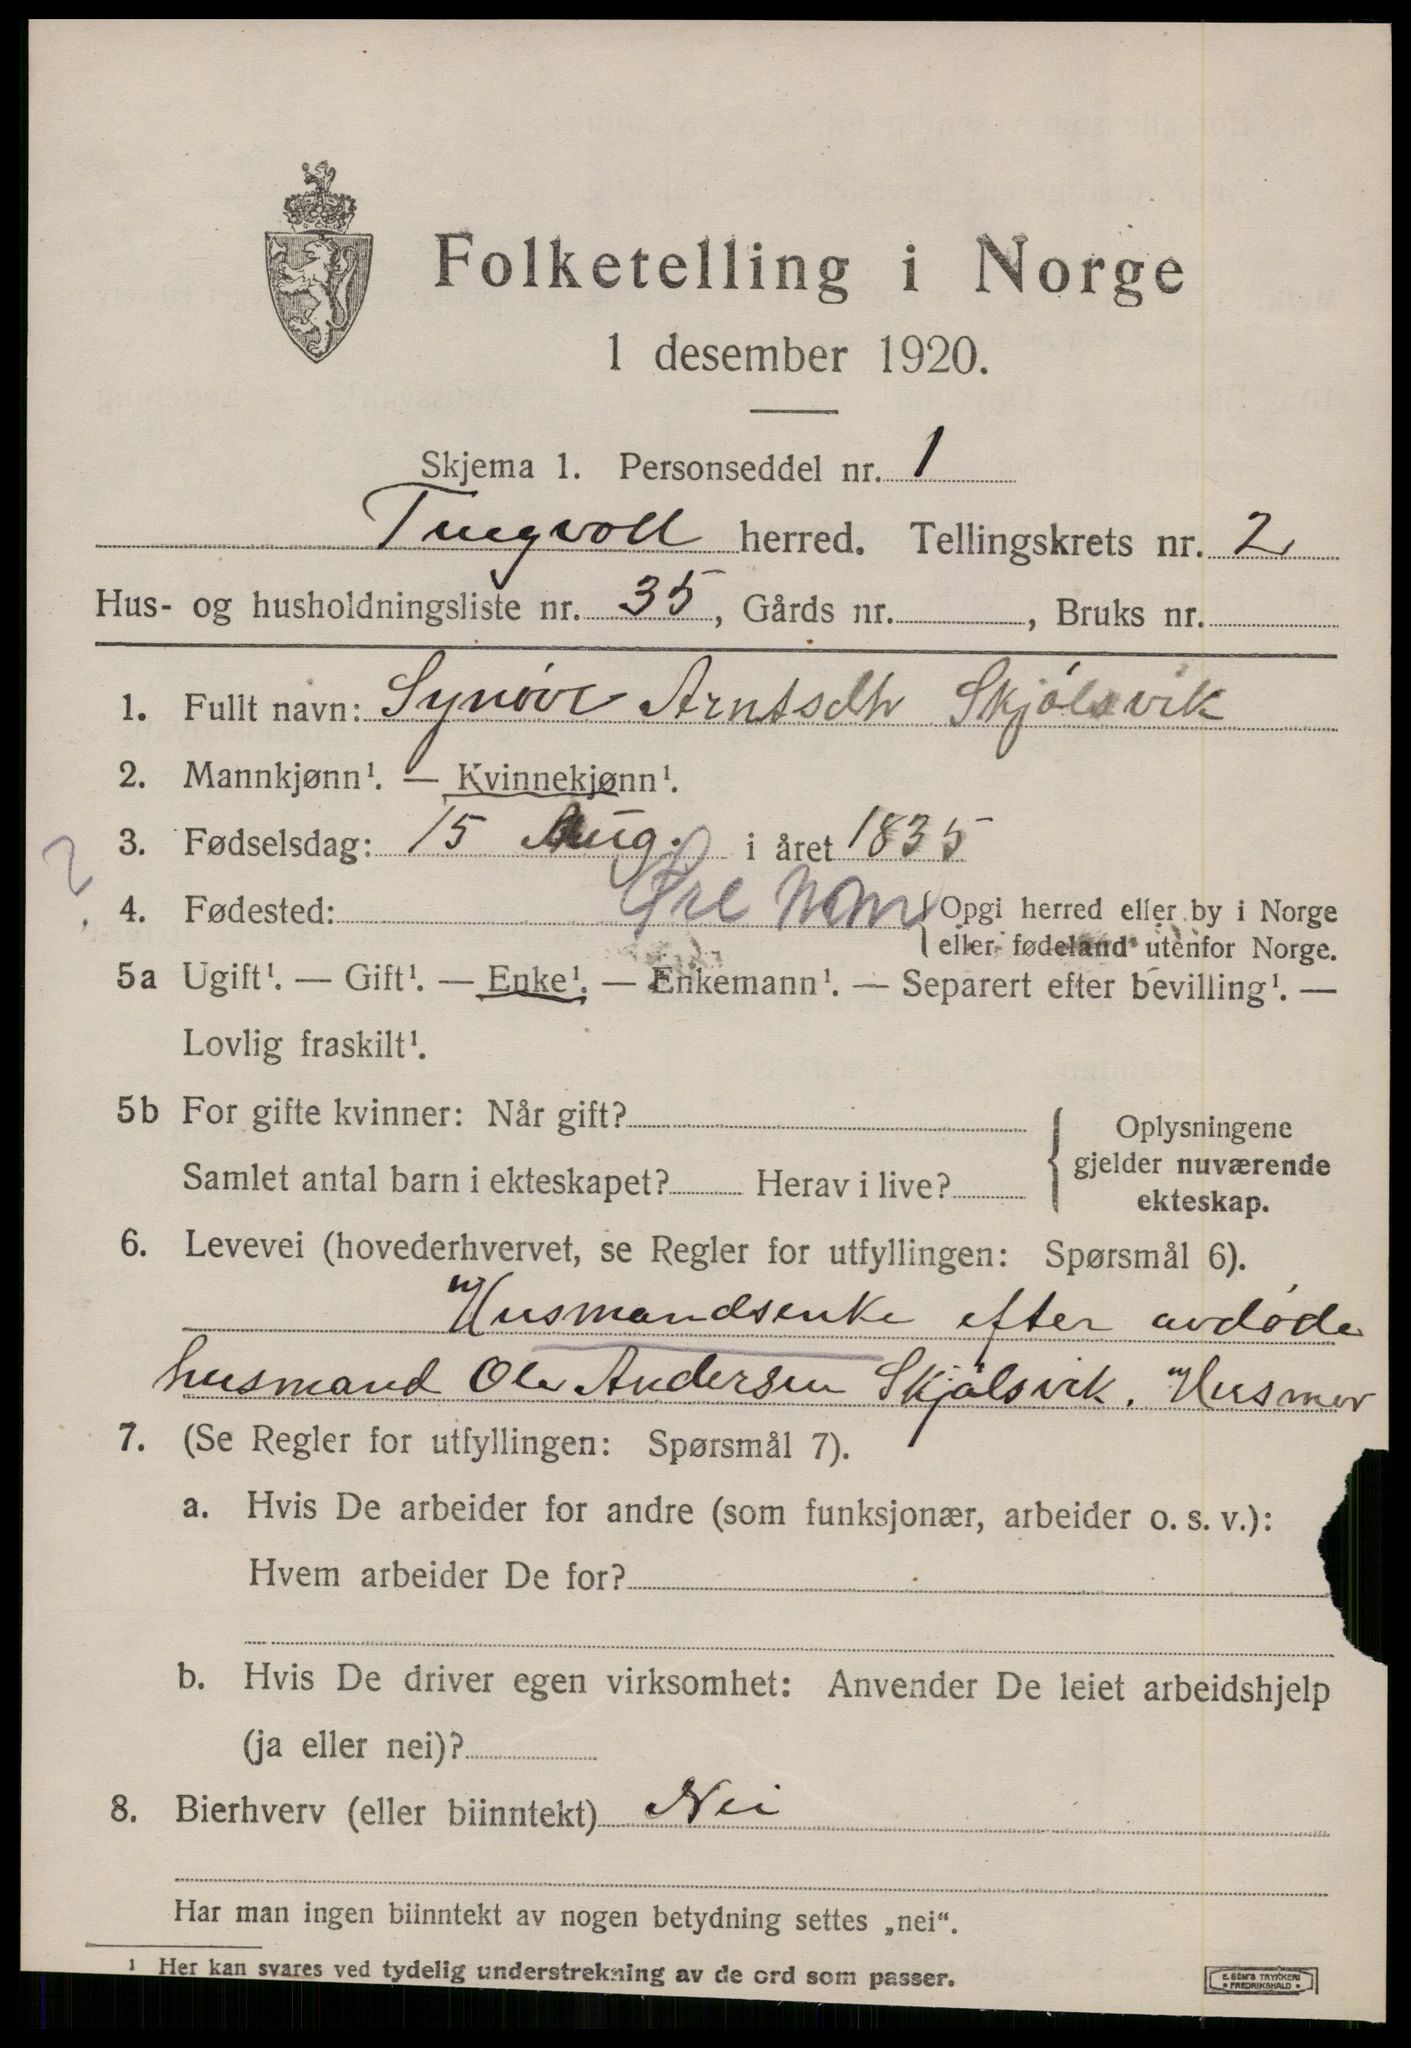 Folketelling i Norge
1 desember 1920.
Skjema 1. Personseddel nr. 1
Tingvoll herred. Tellingskrets nr. 2
Hus- og husholdningsliste nr. 35, Gårds nr. , Bruks nr.
1. Fullt navn: Synöve Arntsdtr Skjölsvik
2. Mannkjønn¹. — Kvinnekjønn¹.
3. Fødselsdag: 15 Aug. i året 1835
?
4. Fødested: Øre N M { Opgi herred eller by i Norge
eller fødeland utenfor Norge.
5a Ugift¹. — Gift¹. — Enke¹. — Enkemann¹. — Separert efter bevilling¹. —
Lovlig fraskilt¹.
5b For gifte kvinner: Når gift?
Samlet antal barn i ekteskapet? Herav i live?
Oplysningene
gjelder nuværende
ekteskap.
6. Levevei (hovederhvervet, se Regler for utfyllingen: Spørsmål 6).
Husmandsenke efter avdöde
husmand Ole Andersen Skjölsvik. Husmor
7. (Se Regler for utfyllingen: Spørsmål 7).
a. Hvis De arbeider for andre (som funksjonær, arbeider o. s. v.):
Hvem arbeider De for?
b. Hvis De driver egen virksomhet: Anvender De leiet arbeidshjelp
(ja eller nei)?
8. Bierhverv (eller biinntekt) Nei
Har man ingen biinntekt av nogen betydning settes „nei“.
¹ Her kan svares ved tydelig understrekning av de ord som passer.
E. SEM'S TRYKKERI
FREDRIKSHALD